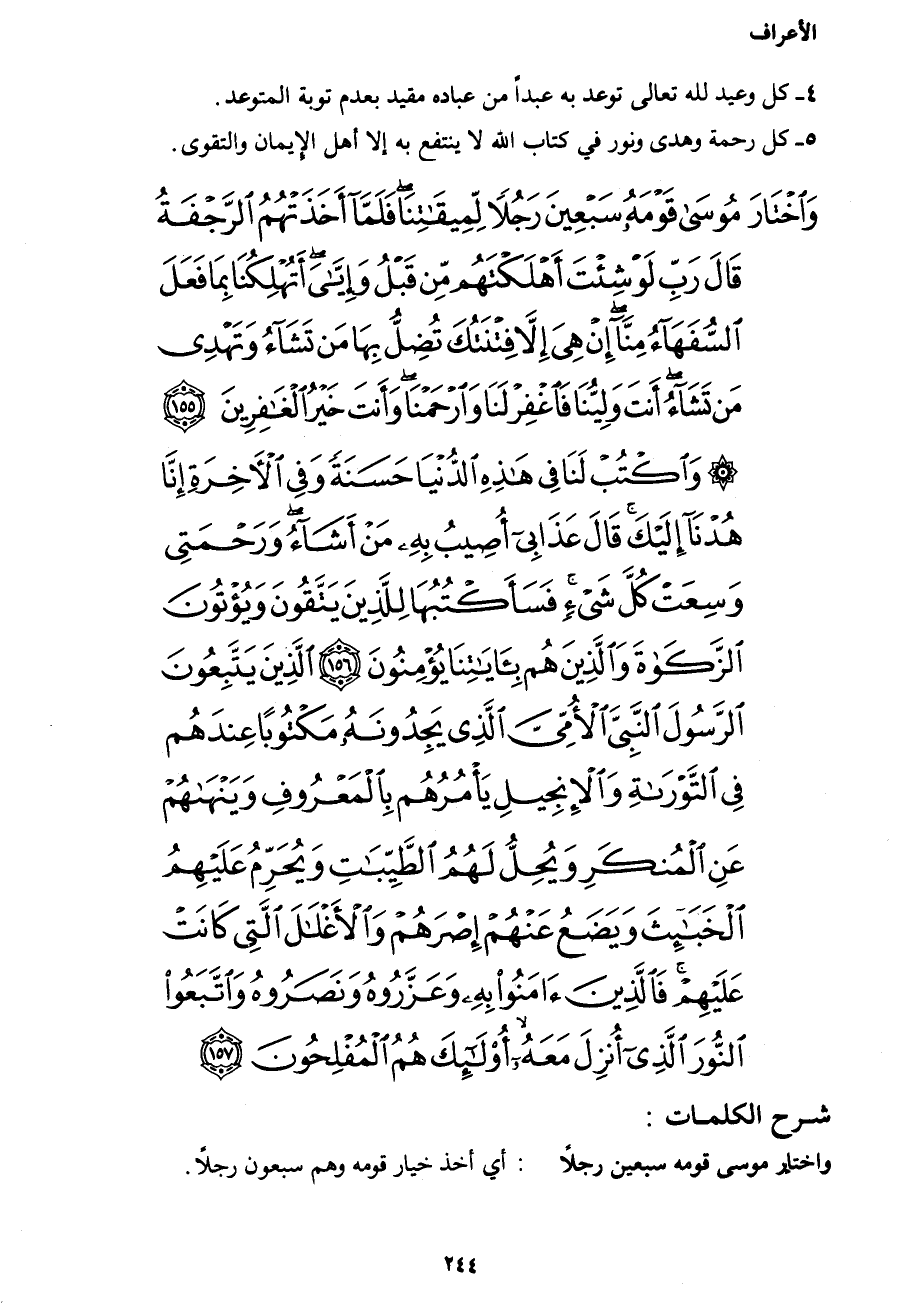 الأعراف
٤ـ كل وعيد لله تعالى توعد به عبداً من عباده مقيد بعدم توبة المتوعد.
٥ـ كل رحمة وهدى ونور في كتاب الله لا ينتفع به إلا أهل الإيمان والتقوى.
وَٱخْتَارَ مُوسَىٰ قَوْمَهُۥ سَبْعِينَ رَجُلًا لِّمِيقَـٰتِنَا ۖ فَلَمَّآ أَخَذَتْهُمُ ٱلرَّجْفَةُ
قَالَ رَبِّ لَوْ شِئْتَ أَهْلَكْتَهُم مِّن قَبْلُ وَإِيَّـٰىَ ۖ أَتُهْلِكُنَا بِمَا فَعَلَ
ٱلسُّفَهَآءُ مِنَّآ ۖ إِنْ هِىَ إِلَّا فِتْنَتُكَ تُضِلُّ بِهَا مَن تَشَآءُ وَتَهْدِى
مَن تَشَآءُ ۖ أَنتَ وَلِيُّنَا فَٱغْفِرْ لَنَا وَٱرْحَمْنَا ۖ وَأَنتَ خَيْرُ ٱلْغَـٰفِرِينَ ١٥٥
۞ وَٱكْتُبْ لَنَا فِى هَـٰذِهِ ٱلدُّنْيَا حَسَنَةً وَفِى ٱلْـَٔاخِرَةِ إِنَّا
هُدْنَآ إِلَيْكَ ۚ قَالَ عَذَابِىٓ أُصِيبُ بِهِۦ مَنْ أَشَآءُ ۖ وَرَحْمَتِى
وَسِعَتْ كُلَّ شَىْءٍ ۚ فَسَأَكْتُبُهَا لِلَّذِينَ يَتَّقُونَ وَيُؤْتُونَ
ٱلزَّكَوٰةَ وَٱلَّذِينَ هُم بِـَٔايَـٰتِنَا يُؤْمِنُونَ ١٥٦ ٱلَّذِينَ يَتَّبِعُونَ
ٱلرَّسُولَ ٱلنَّبِىَّ ٱلْأُمِّىَّ ٱلَّذِى يَجِدُونَهُۥ مَكْتُوبًا عِندَهُمْ
فِى ٱلتَّوْرَىٰةِ وَٱلْإِنجِيلِ يَأْمُرُهُم بِٱلْمَعْرُوفِ وَيَنْهَىٰهُمْ
عَنِ ٱلْمُنكَرِ وَيُحِلُّ لَهُمُ ٱلطَّيِّبَـٰتِ وَيُحَرِّمُ عَلَيْهِمُ
ٱلْخَبَـٰٓئِثَ وَيَضَعُ عَنْهُمْ إِصْرَهُمْ وَٱلْأَغْلَـٰلَ ٱلَّتِى كَانَتْ
عَلَيْهِمْ ۚ فَٱلَّذِينَ ءَامَنُوا۟ بِهِۦ وَعَزَّرُوهُ وَنَصَرُوهُ وَٱتَّبَعُوا۟
ٱلنُّورَ ٱلَّذِىٓ أُنزِلَ مَعَهُۥٓ ۙ أُو۟لَـٰٓئِكَ هُمُ ٱلْمُفْلِحُونَ ١٥٧
شرح الكلمات :
واختار موسى قومه سبعين رجلًا : أي أخذ خيار قومه وهم سبعون رجلًا.
٢٤٤